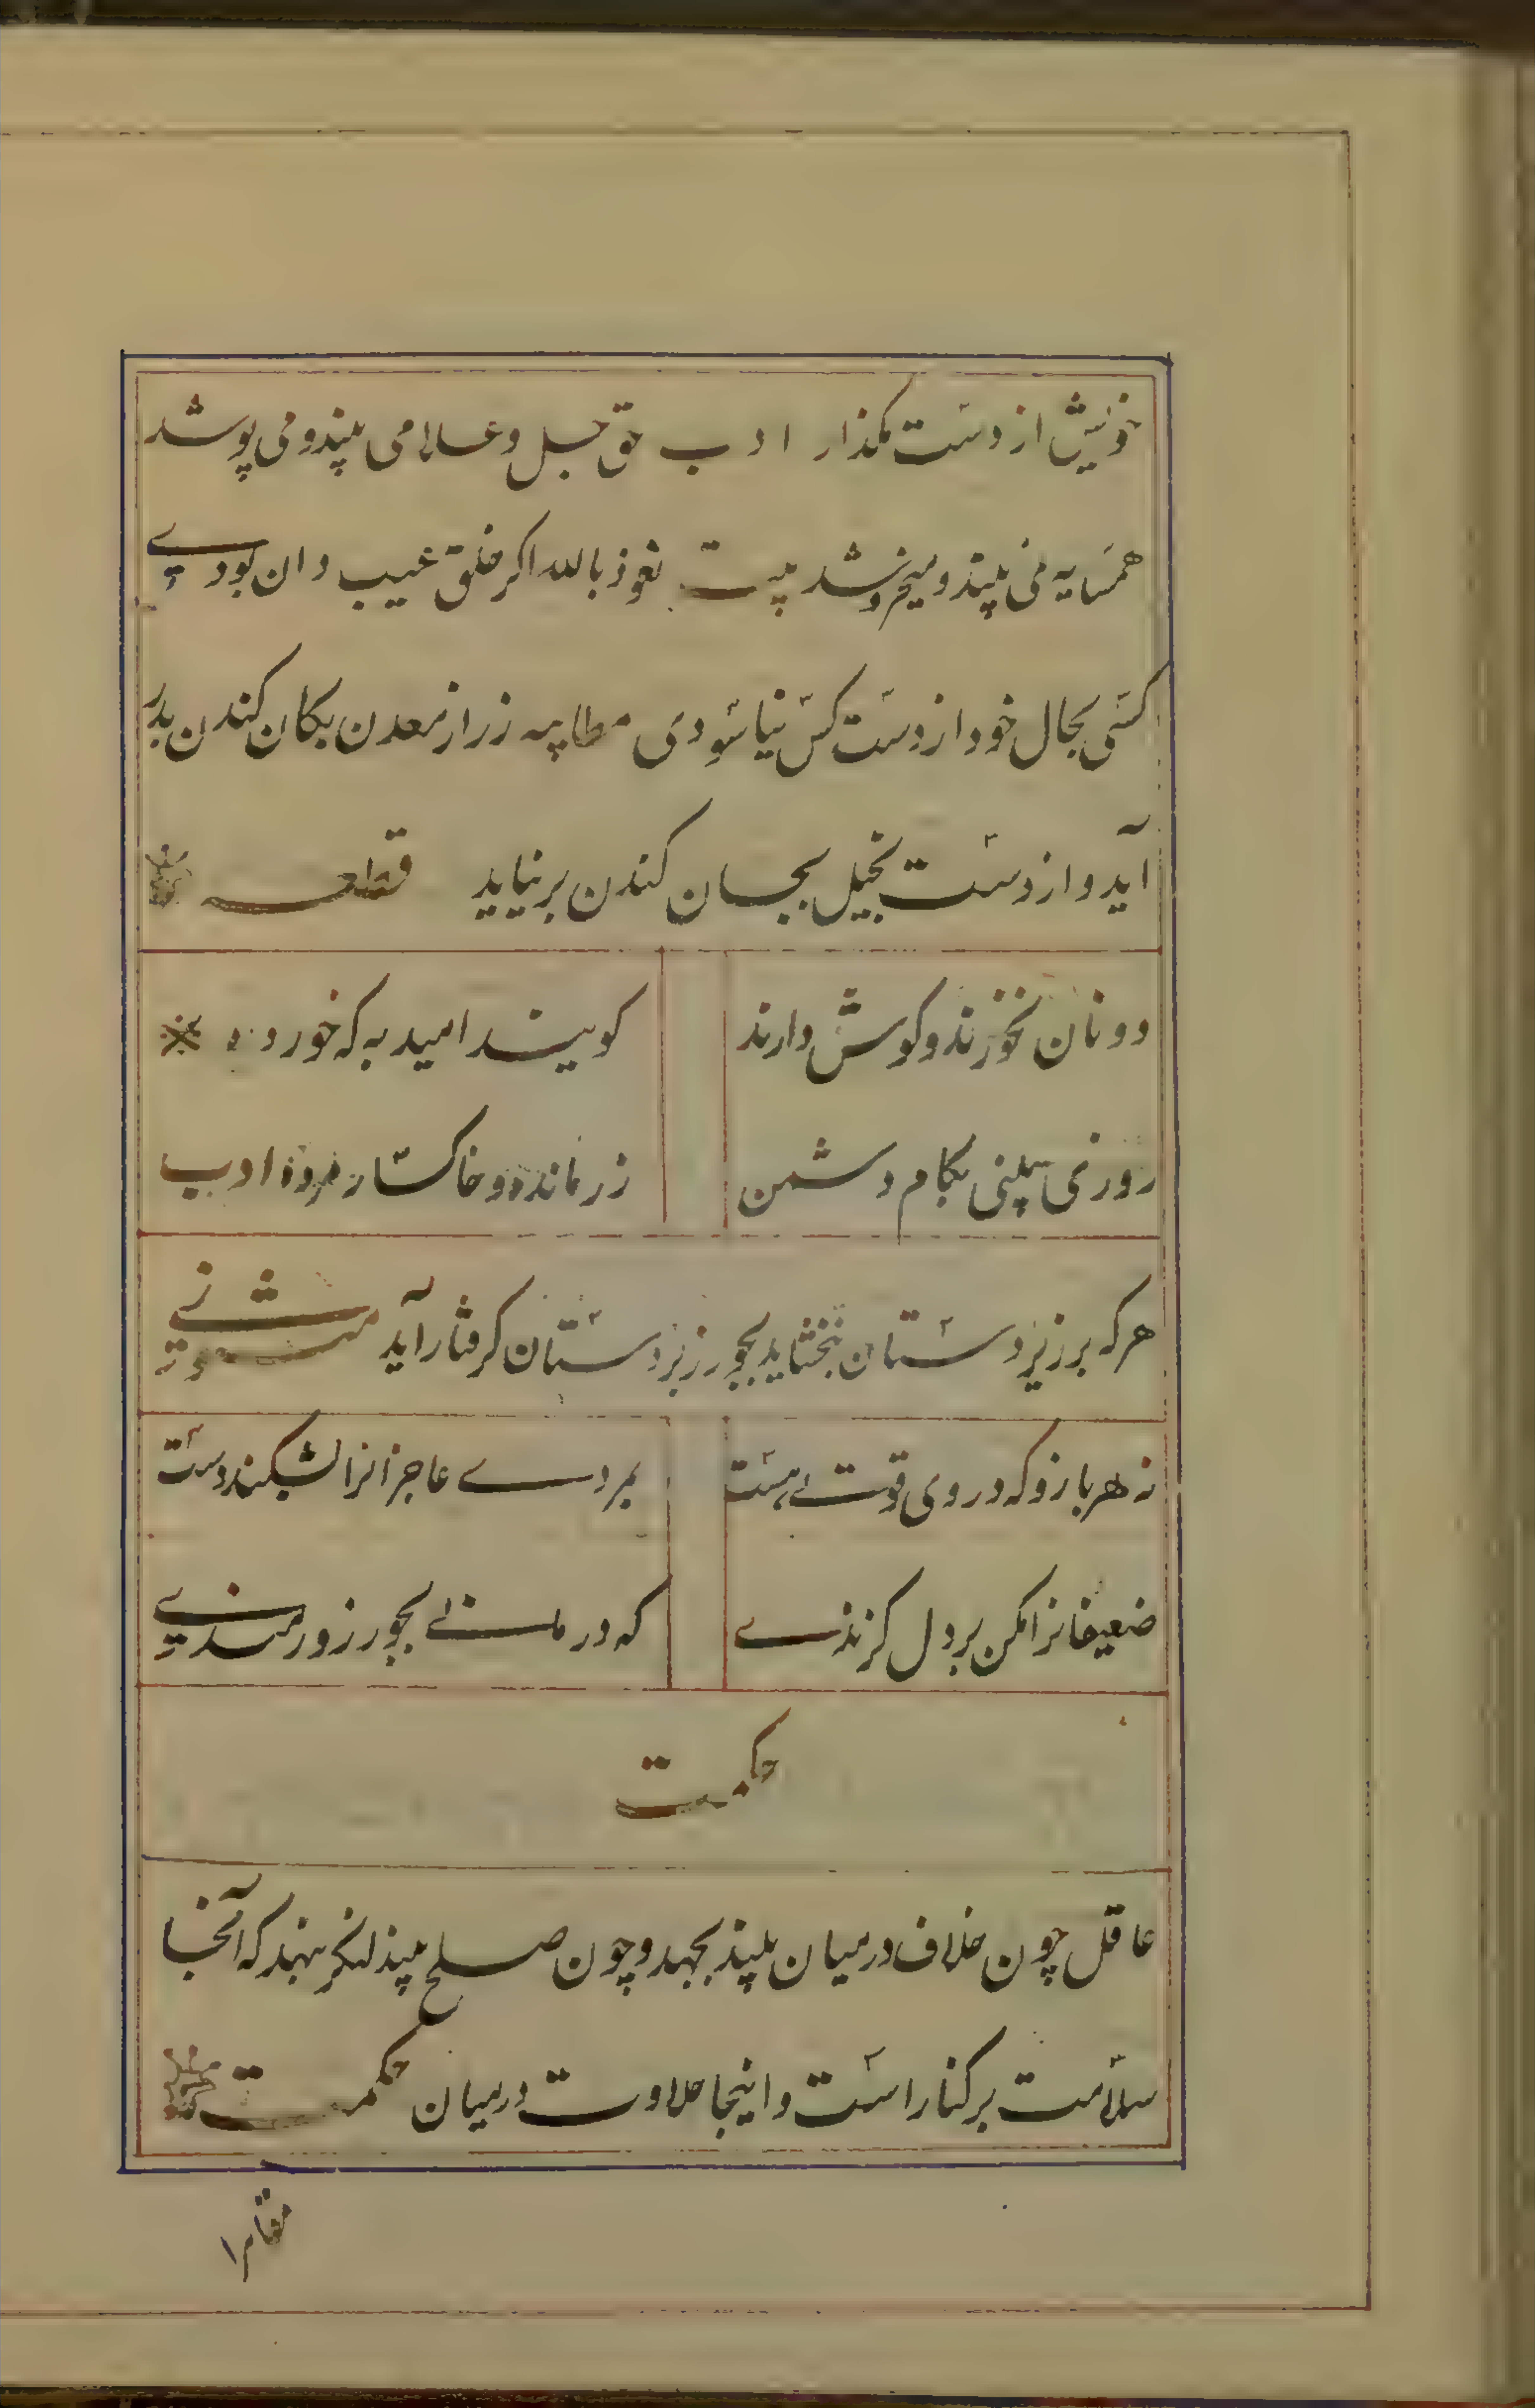 خویش از دست مگذار ادب حق جل و علا می بیند و می پوشد
همسایه نمی بیند و میخروشد بیت نعوذ بالله اکر خلق غیب دان بودی
کسی بحال خود از دست کس نیاسودی مطایبه زر از معدن بکان کندن بدر
آید و از دست بخیل بجان کندن برنیاید قطعه
دونان نخورند و کوش دارند
کویند امید به که خورده
روزی بینی بکام دشمن
زر مانده و خاکسار مرده ادب
هرکه بر زیردستان نبخشاید بجور زبردستان کرفتار آید مثنوی
نه هر بازو که در وی قوتی هست
بمردی عاجزانرا بشکند دست
ضعیفانرا مکن بر دل کزندی
که درمانی بجور زورمندی
حکمت
عاقل چون خلاف درمیان بیند بجهد و چون صلح بیند لنکر بنهد که آنجا
سلامت بر کنار است و اینجا حلاوت درمیان حکمت
مقامر